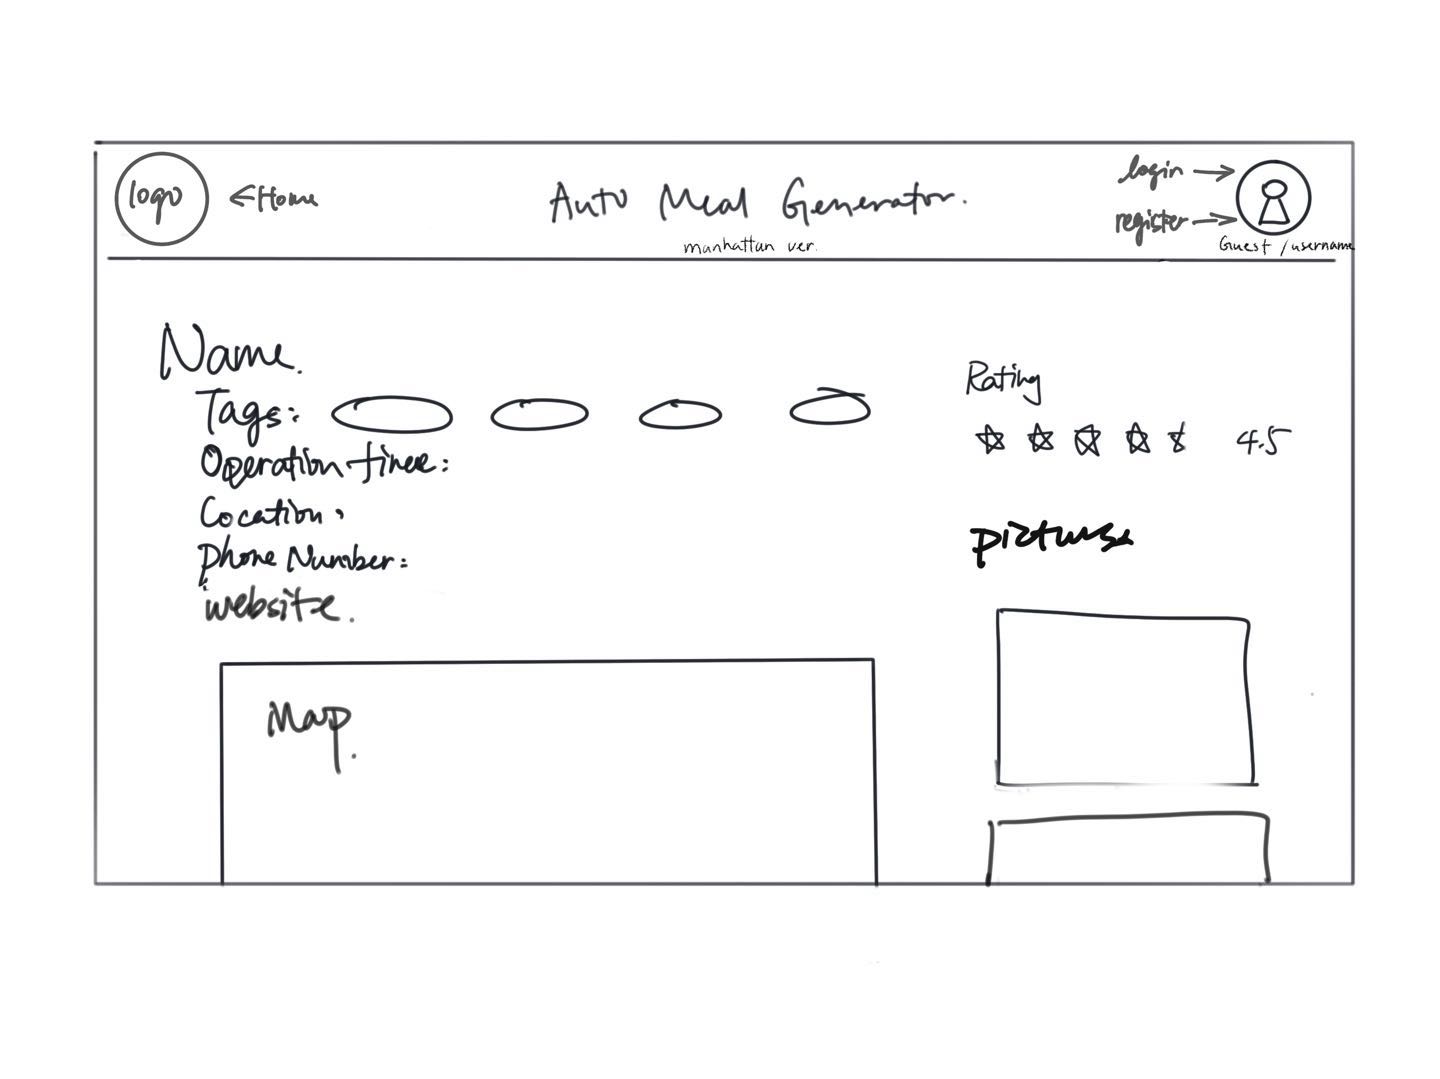 logo
←Home
Auto Meal Generator.
manhattan ver.
login →
register →
Guest / username
Name.
Tags:
Operation time:
Location:
Phone Number:
website.
Map.
Rating
4.5
pictures